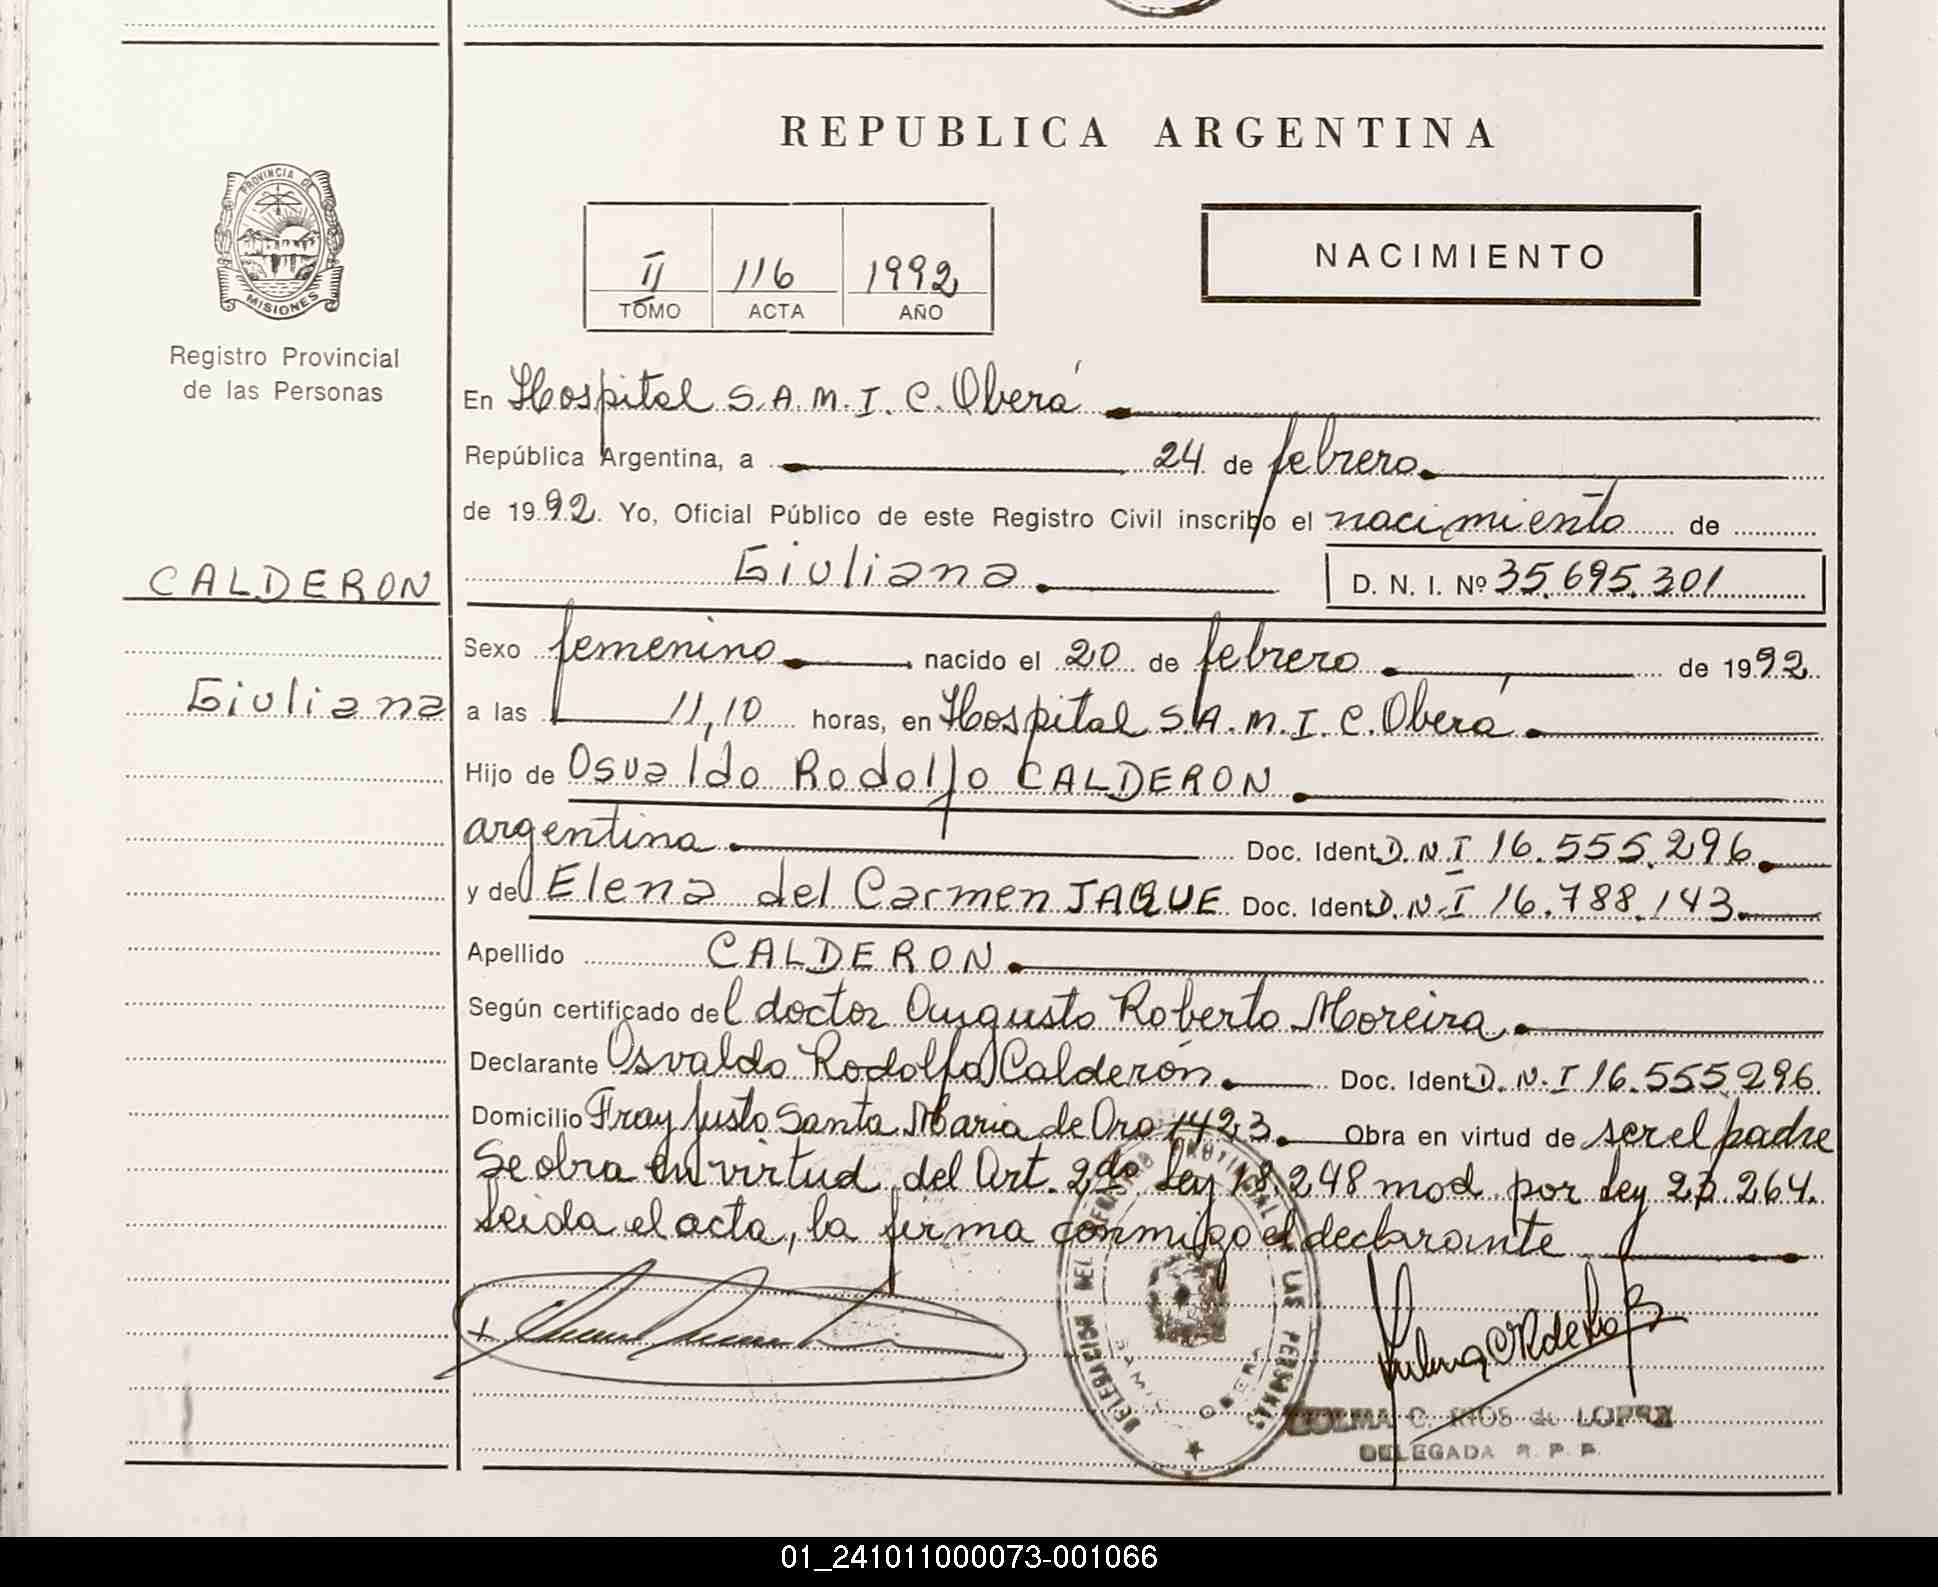 REPUBLICA ARGENTINA
PROVINCIA DE
MISIONES
Registro Provincial
de las Personas
II 116 1992
TOMO ACTA AÑO
NACIMIENTO
En Hospital S.A.M.I.C. Oberá
República Argentina, a 24 de febrero
de 1992. Yo, Oficial Público de este Registro Civil inscribo el nacimiento de
CALDERON
Giuliana D. N. I. Nº 35.695.301
Sexo femenino nacido el 20 de febrero de 1992
Giuliana
a las 11,10 horas, en Hospital S.A.M.I.C. Oberá
Hijo de Osvaldo Rodolfo CALDERON
argentina Doc. Ident D.N.I 16.555.296
y de Elena del Carmen JAQUE Doc. Ident D.N.I 16.788.143
Apellido CALDERON
Según certificado del doctor Augusto Roberto Moreira
Declarante Osvaldo Rodolfo Calderón Doc. Ident D.N.I 16.555.296
Domicilio Fray Justo Santa Maria de Oro 1423. Obra en virtud de ser el padre
Se obra en virtud del Art. 2do Ley 18.248 mod. por Ley 23.264.
Leida el acta, la firma conmigo el declarante
DELEGACION DEL REGISTRO PROVINCIAL DE LAS PERSONAS
SAMIC OBERA
C. RIOS de LOPEZ
DELEGADA R. P. P.
01_241011000073-001066